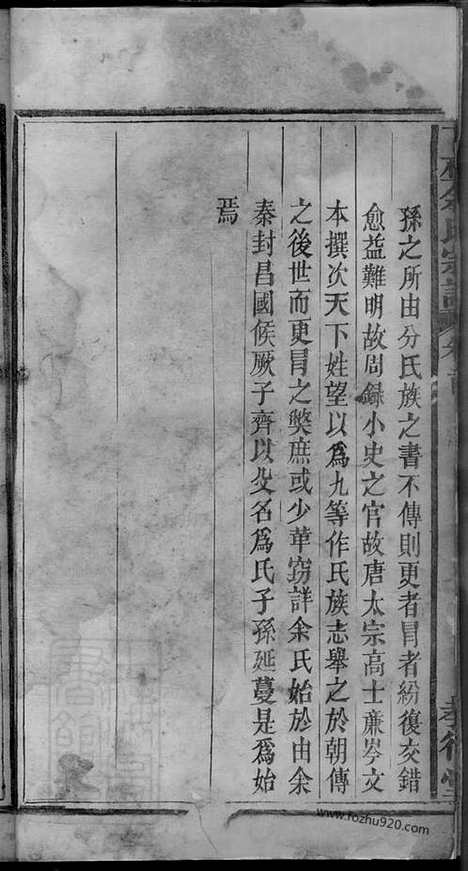 孫之所由分氏族之書不傳則更者冒者紛復交錯
愈益難明故周錄小史之官故唐太宗高士廉岑文
本撰次天下姓望以為九等作氏族志舉之於朝傳
之後世而更冒之獘庶或少華窃詳余氏始於由余
秦封昌國候厥子齊以父名爲氏子孫延蔓是爲始
焉
余氏宗譜
孝徳堂
www.fozhu920.com